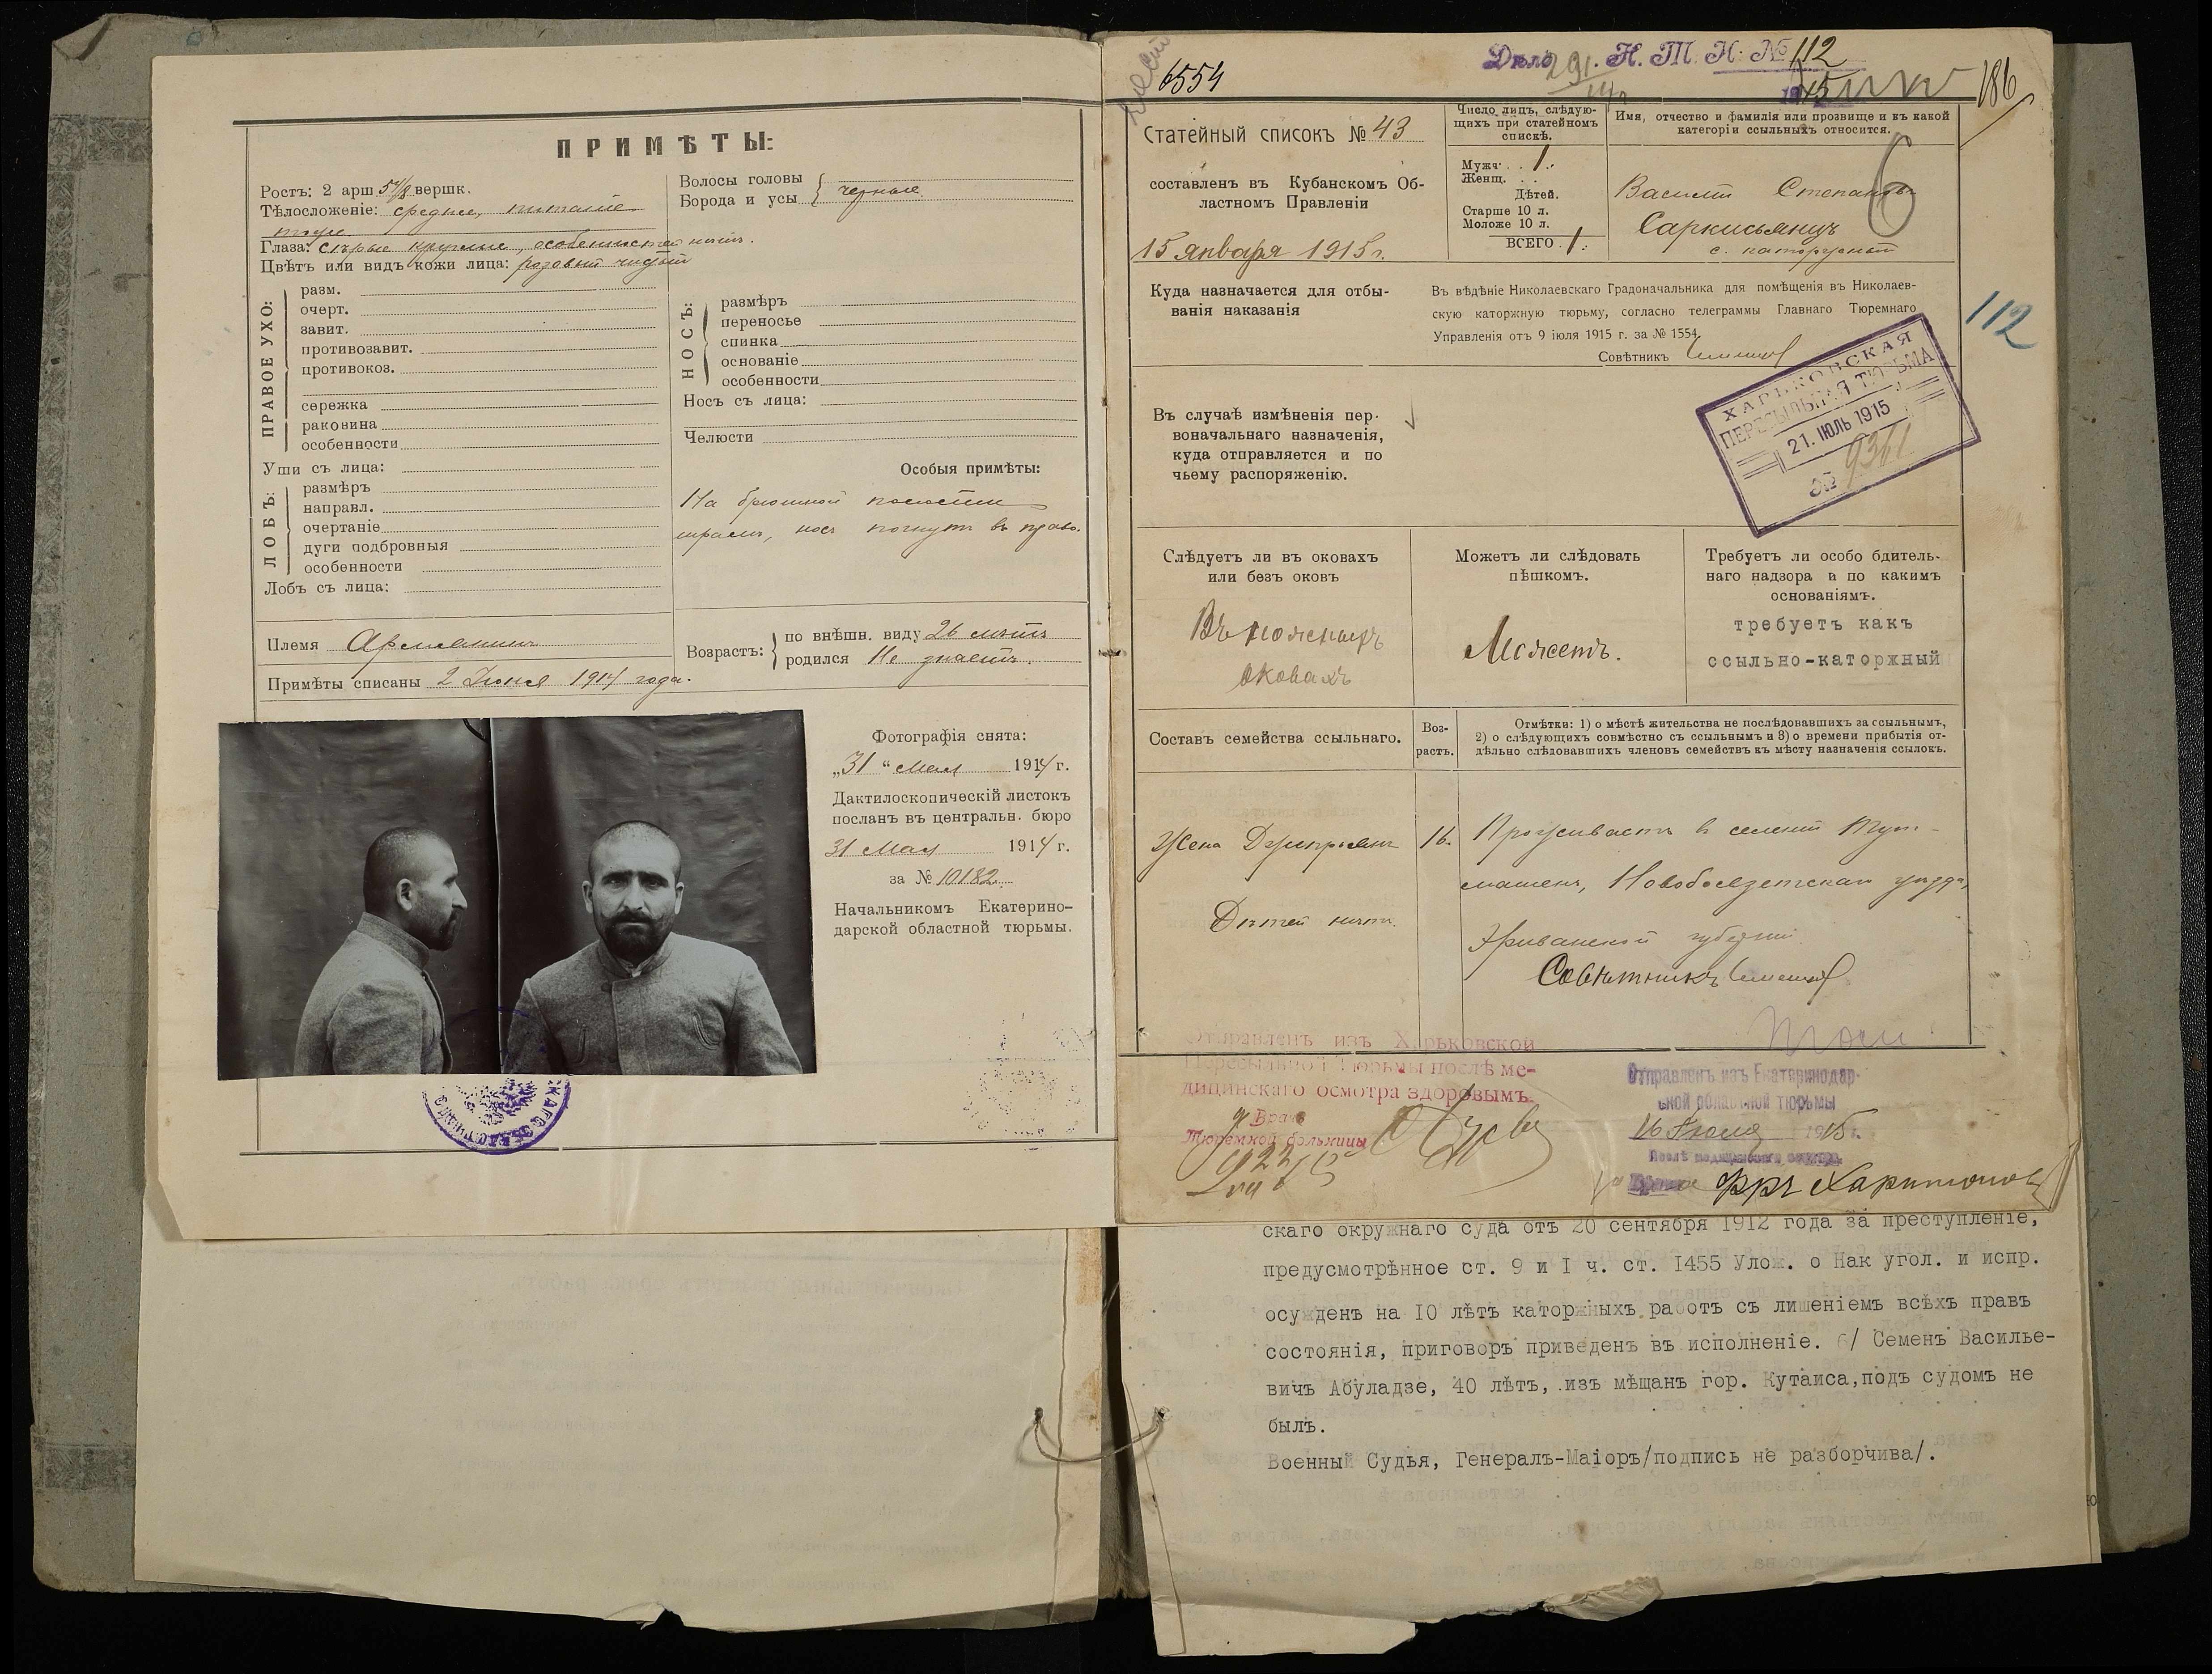 ПРИМѢТЫ:
Ростъ: 2 арш 5 4/8 вершк.
Тѣлосложеніе: среднее, питаніе
тоже
Глаза: сѣрые круглые, особенностей нѣтъ.
Цвѣтъ или видъ кожи лица: розовый чистый
Волосы головы
Борода и усы } черные
ПРАВОЕ УХО:
разм.
очерт.
завит.
противозавит.
противокоз.
сережка
раковина
особенности
Уши съ лица:
ЛОБЪ:
размѣръ
направл.
очертаніе
дуги подбровныя
особенности
Лобъ съ лица:
НОСЪ:
размѣръ
переносье
спинка
основаніе
особенности
Носъ съ лица:
Челюсти
Особыя примѣты:
На брюшной полости
шрамъ, носъ погнутъ въ право.
Племя Армянинъ
Примѣты списаны 2 Іюня 1914 года.
Возрастъ: { по внѣшн. виду 26 лѣтъ
родился Не знаетъ.
Фотографія снята:
„31“ Мая 1914 г.
Дактилоскопическій листокъ
посланъ въ центральн. бюро
31 Мая 1914 г.
за № 10182
Начальникомъ Екатерино-
дарской областной тюрьмы.
6554
Дѣло Н. Т. Н. № 112
1915
186
Статейный списокъ № 43
составленъ въ Кубанскомъ Об-
ластномъ Правленіи
15 января 1915 г.
Число лицъ, слѣдую-
щихъ при статейномъ
спискѣ.
Мужч. . . 1.
Женщ. . .
Дѣтей.
Старше 10 л.
Моложе 10 л.
ВСЕГО . 1.
Имя, отчество и фамилія или прозвище и къ какой
категоріи ссыльныхъ относится.
6
Василій Степановъ
Саркисьянцъ
с. каторжный
Куда назначается для отбы-
ванія наказанія
Въ вѣдѣніе Николаевскаго Градоначальника для помѣщенія въ Николаев-
скую каторжную тюрьму, согласно телеграммы Главнаго Тюремнаго
Управленія отъ 9 іюля 1915 г. за № 1554.
Совѣтникъ
112
ХАРЬКОВСКАЯ
ПЕРЕСЫЛЬНАЯ ТЮРЬМА
21. ІЮЛЬ 1915
№ 9361
Въ случаѣ измѣненія пер-
воначальнаго назначенія,
куда отправляется и по
чьему распоряженію.
Слѣдуетъ ли въ оковахъ
или безъ оковъ
Въ ножныхъ
оковахъ
Можетъ ли слѣдовать
пѣшкомъ.
Можетъ.
Требуетъ ли особо бдитель-
наго надзора и по какимъ
основаніямъ.
требуетъ какъ
ссыльно-каторжный
Составъ семейства ссыльнаго.
Воз-
растъ.
Отмѣтки: 1) о мѣстѣ жительства не послѣдовавшихъ за ссыльнымъ,
2) о слѣдующихъ совмѣстно съ ссыльнымъ и 3) о времени прибытія от-
дѣльно слѣдовавшихъ членовъ семействъ къ мѣсту назначенія ссылокъ.
Жена 16.
Дѣтей нѣтъ.
Проживаетъ в селеніи
Новобаязетскаго уѣзда,
Эриванской губерніи
Совѣтникъ
Отправленъ изъ Харьковской
Пересыльной Тюрьмы послѣ ме-
дицинскаго осмотра здоровымъ.
Врачъ
Тюремной больницы
Отправленъ изъ Екатеринодар-
ской областной тюрьмы
16 Іюля 1915 г.
Послѣ медицинскаго осмотра
Харитонов
скаго окружнаго суда отъ 20 сентября 1912 года за преступленіе,
предусмотрѣнное ст. 9 и I ч. ст. 1455 Улож. о Нак угол. и испр.
осужденъ на 10 лѣтъ каторжныхъ работъ съ лишеніемъ всѣхъ правъ
состоянія, приговоръ приведенъ въ исполненіе. 6/ Семенъ Василье-
вичъ Абуладзе, 40 лѣтъ, изъ мѣщанъ гор. Кутаиса, подъ судомъ не
былъ.
Военный Судья, Генералъ-Маіоръ/подпись не разборчива/.